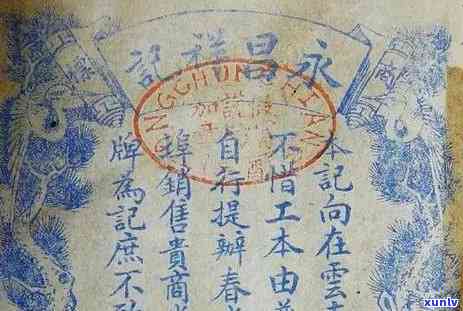 永昌祥記
商
標
NGCHUN
HIAN
本記向在雲
不惜工本由
自行提辦春
銷售貴商
牌為記庶不
xunlv